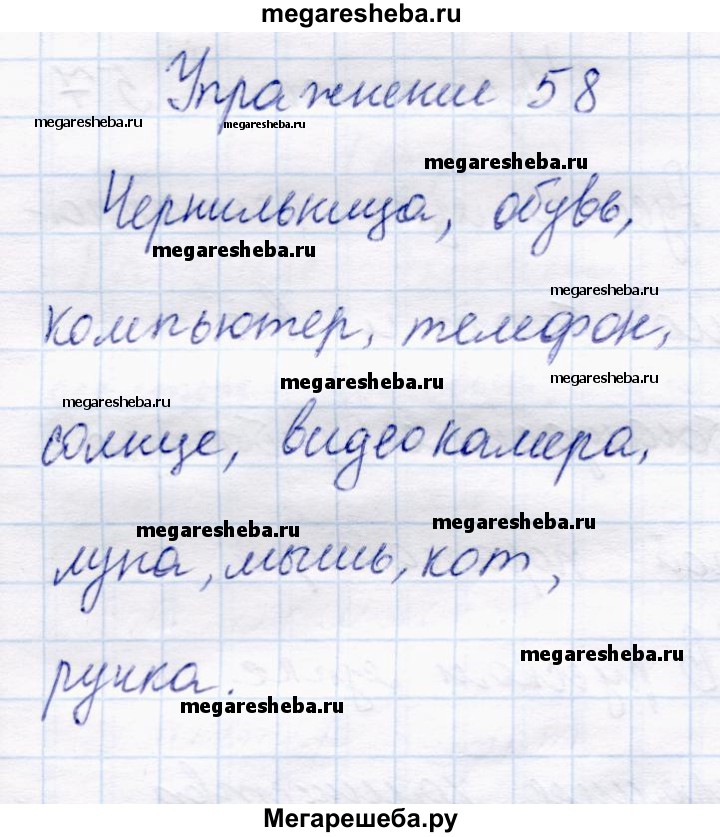 megaresheba.ru
Упражнение 58
megaresheba.ru
megaresheba.ru
megaresheba.ru
Чернильница, обувь,
megaresheba.ru
megaresheba.ru
компьютер, телефон,
megaresheba.ru
megaresheba.ru
megaresheba.ru
солнце, видеокамера,
megaresheba.ru
megaresheba.ru
лупа, мышь, кот,
megaresheba.ru
ручка.
megaresheba.ru
Мегарешеба.ру